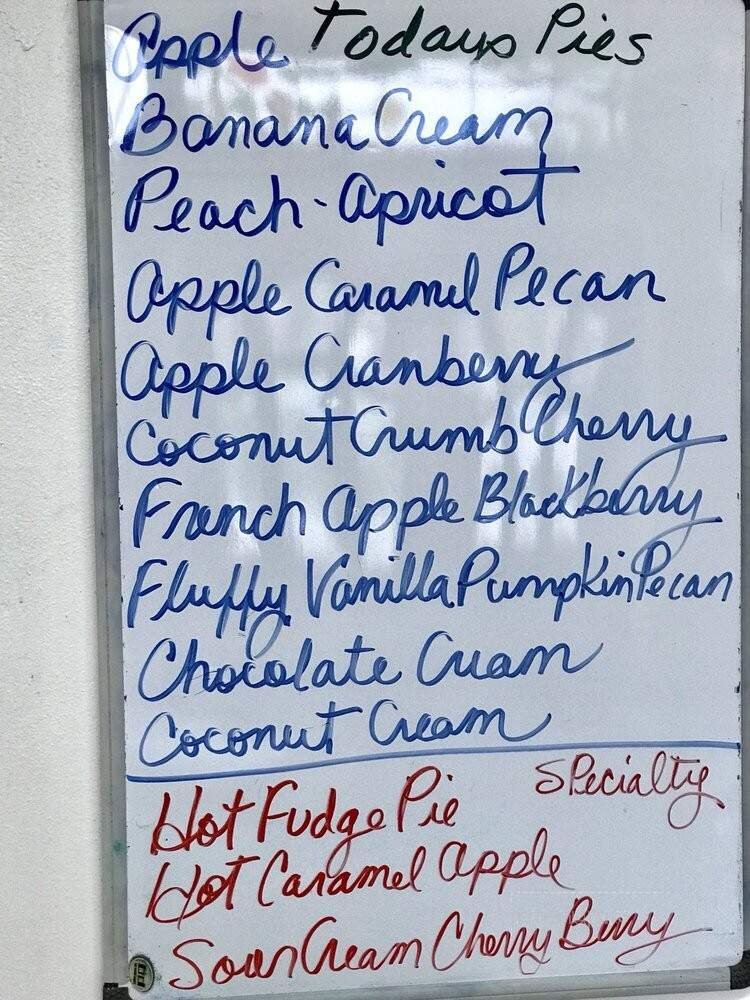 Todays Pies
Apple
Banana Cream
Peach-Apricot
Apple Caramel Pecan
Apple Cranberry
Coconut Crumb Cherry
French Apple Blackberry
Fluffy Vanilla Pumpkin Pecan
Chocolate Cream
Coconut Cream
Specialty
Hot Fudge Pie
Hot Caramel Apple
Sour Cream Cherry Berry